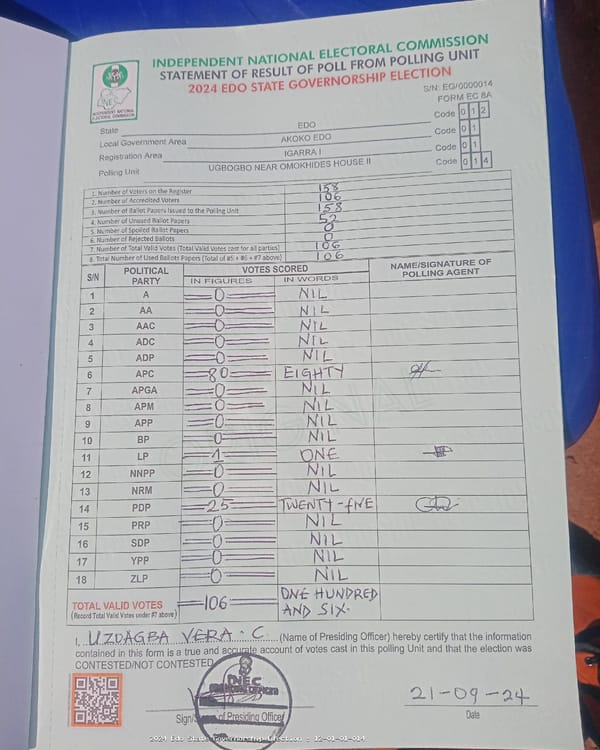 INDEPENDENT NATIONAL ELECTORAL COMMISSION
STATEMENT OF RESULT OF POLL FROM POLLING UNIT
2024 EDO STATE GOVERNORSHIP ELECTION
S/N: EG/0000014
FORM EC 8A
INEC
INDEPENDENT NATIONAL ELECTORAL COMMISSION
State EDO Code 0 1 2
Local Government Area AKOKO EDO Code 0 1
Registration Area IGARRA I Code 0 1
Polling Unit UGBOGBO NEAR OMOKHIDES HOUSE II Code 0 1 4
1. Number of Voters on the Register 158
2. Number of Accredited Voters 106
3. Number of Ballot Papers Issued to the Polling Unit 158
4. Number of Unused Ballot Papers 52
5. Number of Spoiled Ballot Papers 0
6. Number of Rejected Ballots 0
7. Number of Total Valid Votes (Total Valid Votes cast for all parties) 106
8. Total Number of Used Ballots Papers (Total of #5 + #6 + #7 above) 106
S/N POLITICAL PARTY VOTES SCORED NAME/SIGNATURE OF POLLING AGENT
IN FIGURES IN WORDS
1 A 0 NIL
2 AA 0 NIL
3 AAC 0 NIL
4 ADC 0 NIL
5 ADP 0 NIL
6 APC 80 EIGHTY
7 APGA 0 NIL
8 APM 0 NIL
9 APP 0 NIL
10 BP 0 NIL
11 LP 1 ONE
12 NNPP 0 NIL
13 NRM 0 NIL
14 PDP 25 TWENTY-FIVE
15 PRP 0 NIL
16 SDP 0 NIL
17 YPP 0 NIL
18 ZLP 0 NIL
TOTAL VALID VOTES 106 ONE HUNDRED
(Record Total Valid Votes under #7 above) AND SIX.
I, UZOAGBA VERA. C (Name of Presiding Officer) hereby certify that the information
contained in this form is a true and accurate account of votes cast in this polling Unit and that the election was
CONTESTED/NOT CONTESTED
INEC
PRESIDING OFFICER
21-09-24
of Presiding Officer
Date
2024 Edo State Governorship Election : 12-01-01-014